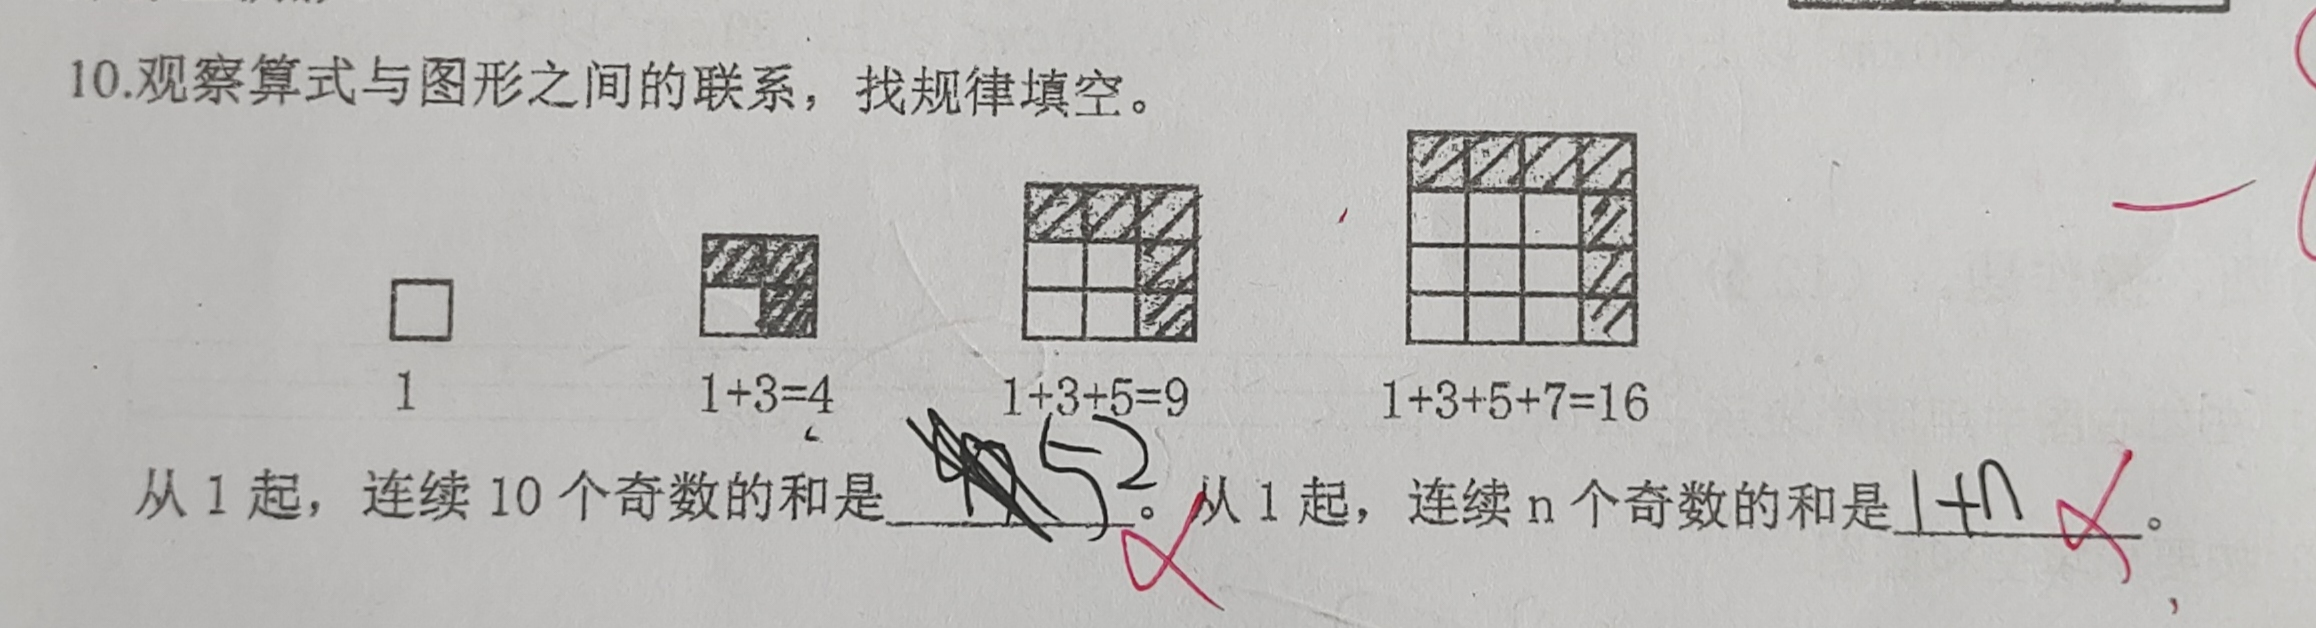 10.观察算式与图形之间的联系，找规律填空。
1 1+3=4 1+3+5=9 1+3+5+7=16
从1起，连续10个奇数的和是 52 。从1起，连续n个奇数的和是 1+n 。